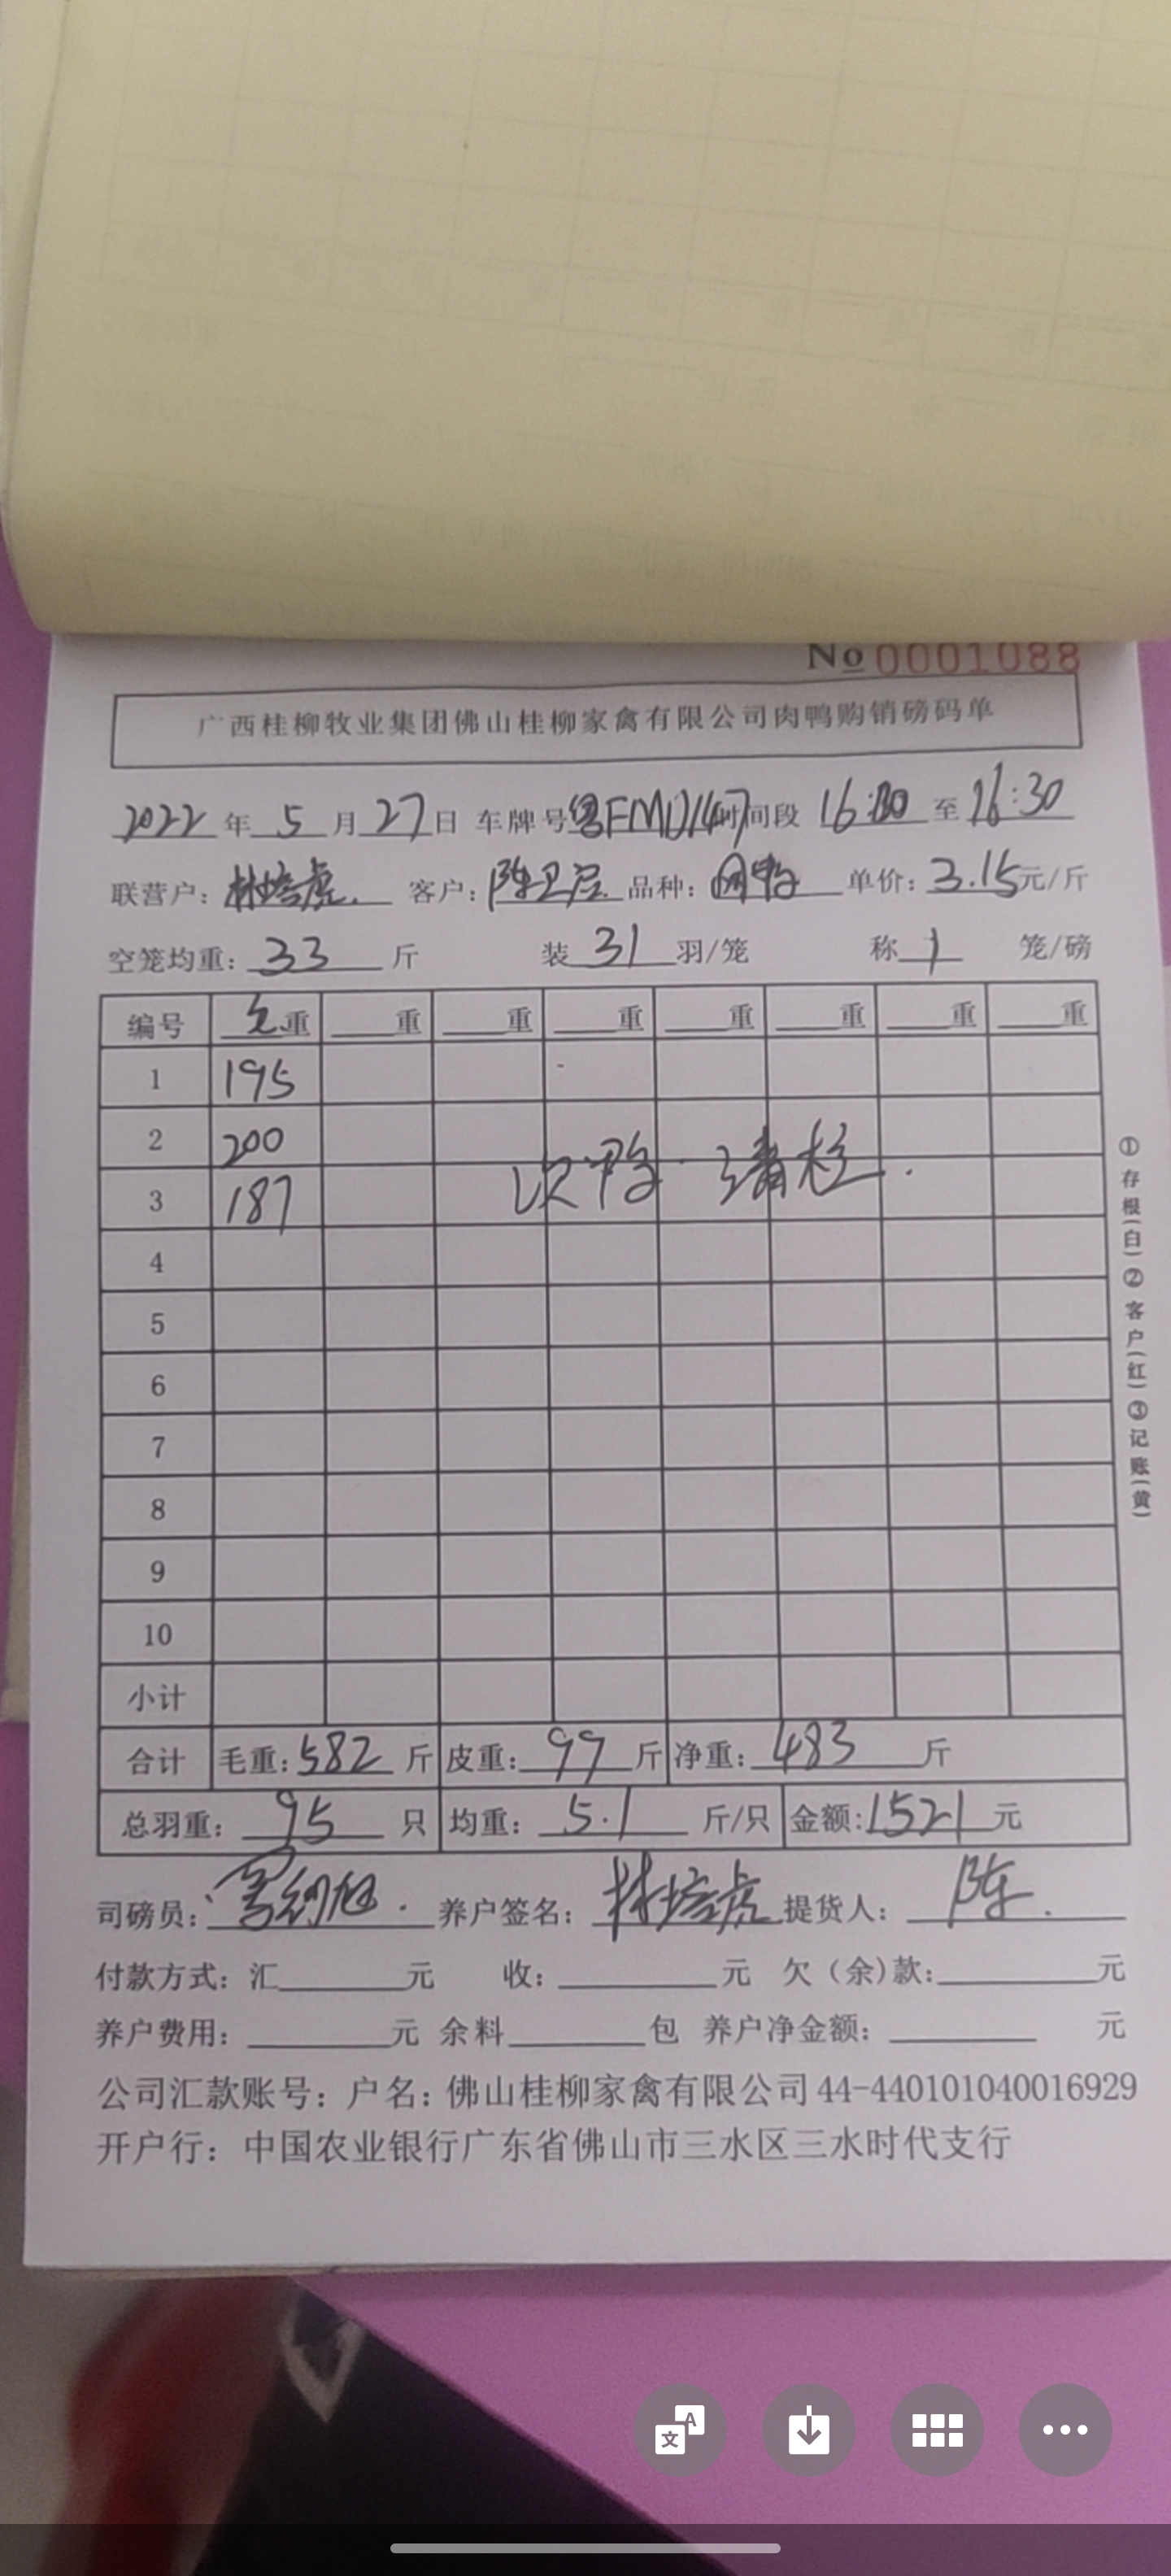 No 0001088
广西桂柳牧业集团佛山桂柳家禽有限公司肉鸭购销磅码单
2022年5月27日 车牌号粤FMD147时间段 16:30至16:30
联营户：林培虎. 客户：陈卫 品种： 单价：3.15元/斤
空笼均重：33斤 装31羽/笼 称1笼/磅
编号 毛重 重 重 重 重 重 重 重
1 195
2 200
3 187
次鸭·清栏.
4
5
6
7
8
9
10
小计
合计 毛重：582斤 皮重：99斤 净重：483斤
总羽重：95只 均重：5.1斤/只 金额：1521元
司磅员： 养户签名：林培虎 提货人：陈.
付款方式：汇 元 收： 元 欠（余)款： 元
养户费用： 元 余料 包 养户净金额： 元
公司汇款账号：户名：佛山桂柳家禽有限公司 44-440101040016929
开户行：中国农业银行广东省佛山市三水区三水时代支行
①存根(白)②客户(红)③记账(黄)